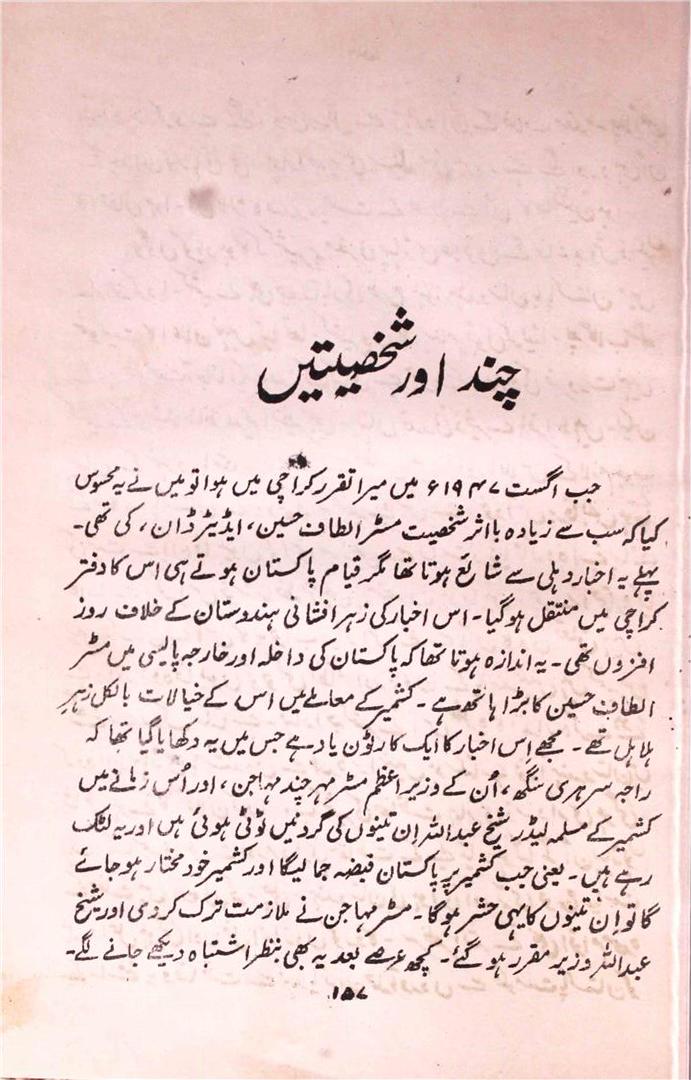 چند اور شخصیتیں
جب اگست ۱۹۴۷ء میں میرا تقرر کراچی میں ہوا تو میں نے یہ محسوس
کیا کہ سب سے زیادہ با اثر شخصیت مسٹر الطاف حسین، ایڈیٹر ڈان، کی تھی۔
پہلے یہ اخبار دہلی سے شائع ہوتا تھا مگر قیام پاکستان ہوتے ہی اس کا دفتر
کراچی میں منتقل ہو گیا۔ اس اخبار کی زہر افشانی ہندوستان کے خلاف روز
افزوں تھی۔ یہ اندازہ ہوتا تھا کہ پاکستان کی داخلہ اور خارجہ پالیسی میں مسٹر
الطاف حسین کا بڑا ہاتھ ہے۔ کشمیر کے معاملے میں اس کے خیالات بالکل زہرِ
ہلاہل تھے۔ مجھے اِس اخبار کا ایک کارٹون یاد ہے جس میں یہ دکھایا گیا تھا کہ
راجہ سر ہری سنگھ، اُن کے وزیر اعظم مسٹر مہر چند مہاجن، اور اُس زمانے میں
کشمیر کے مسلمہ لیڈر شیخ عبداللہ اِن تینوں کی گردنیں ٹوٹی ہوئی ہیں اور یہ لٹک
رہے ہیں۔ یعنی جب کشمیر پر پاکستان قبضہ جما لیگا اور کشمیر خود مختار ہو جائے
گا تو اِن تینوں کا یہی حشر ہو گا۔ مسٹر مہاجن نے ملازمت ترک کر دی اور شیخ
عبداللہ وزیر مقرر ہو گئے۔ کچھ عرصے بعد یہ بھی بنظر اشتباہ دیکھے جانے لگے۔
۱۵۷